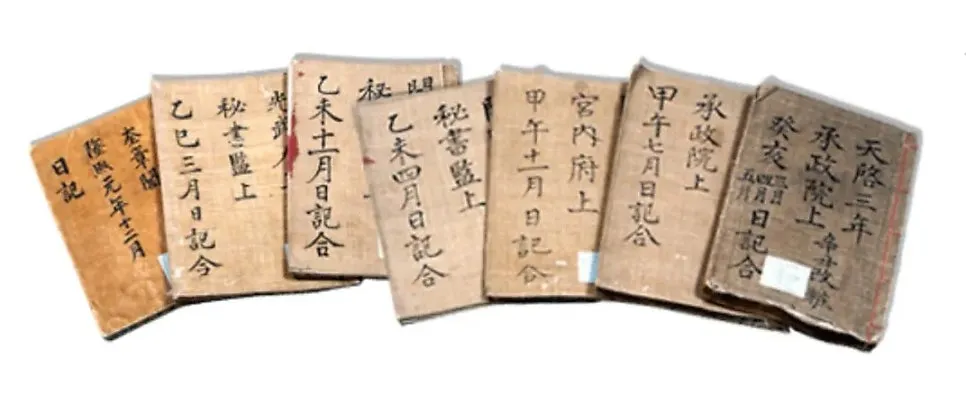 天啓三年
承政院上
改
癸亥
三月
四月
五月
日記合
承政院上
甲午七月日記合
宮内府上
甲午十一月日記合
秘書監上
乙未四月日記合
開
秘
乙未十一月日記合
光武
秘書監上
乙巳三月日記合
奎章閣
隆熙元年十二月
日記